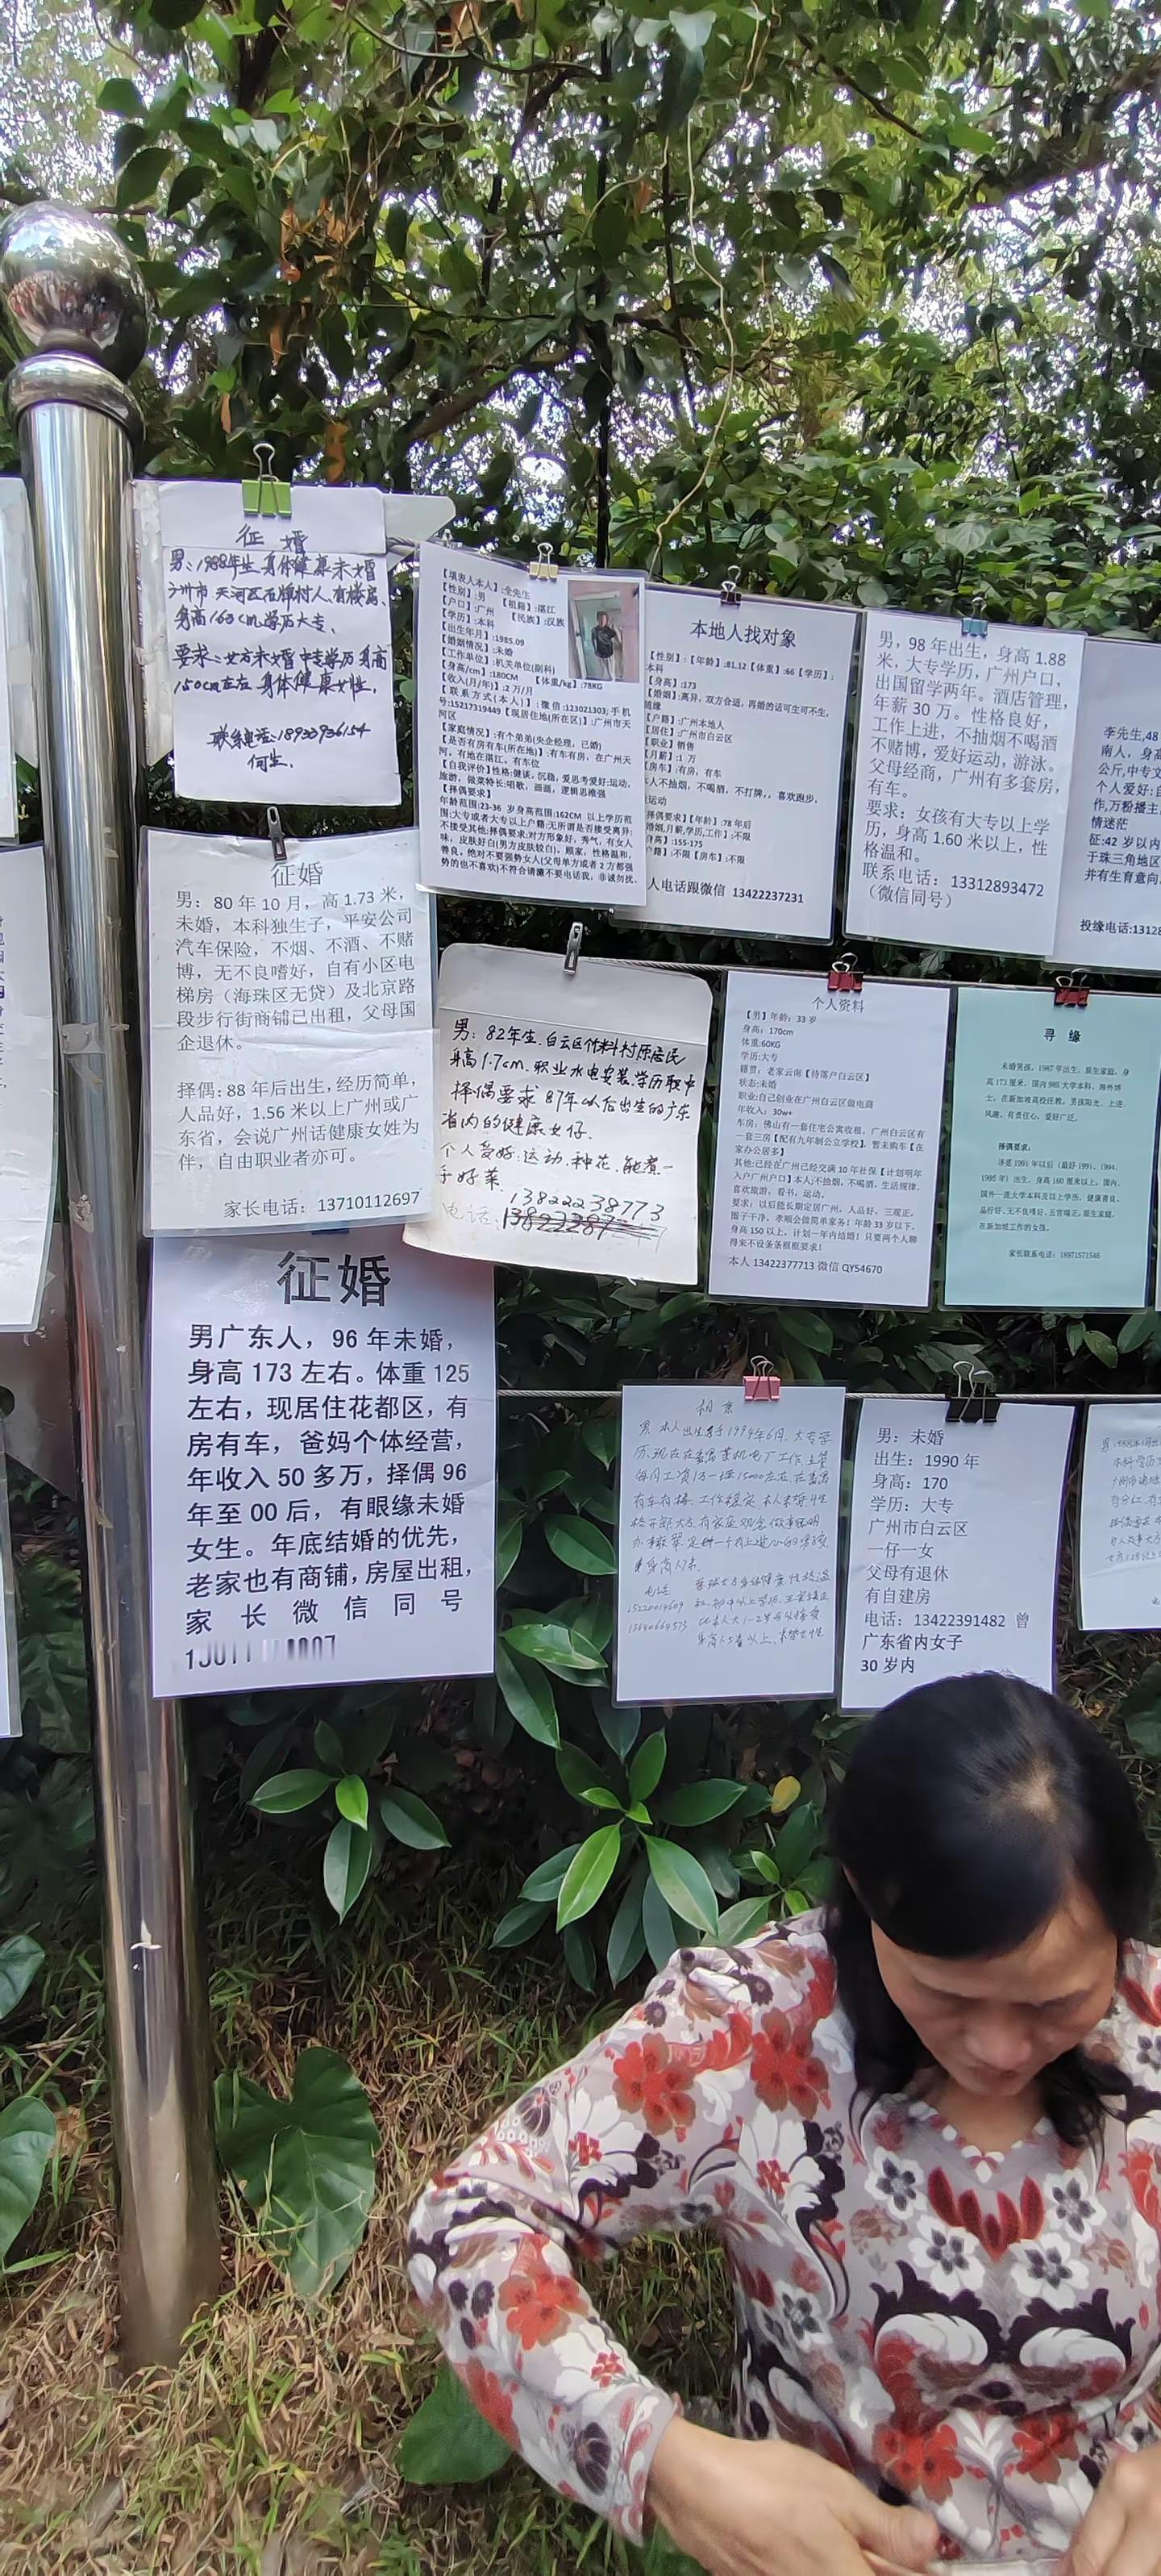 征 婚
男、1988年生 身体健康 未婚
广州市 天河区石牌村人、有楼房、
身高163cm、学历大专、
要求:女方未婚 中专学历 身高
150cm左右 身体健康女性,
联系电话:18933936154
何生.
【填表人本人】:全先生
【性别】:男 【祖籍】:湛江
【户口】:广州 【民族】:汉族
【学历】:本科
【出生年月】:1985.09
【婚姻情况】:未婚
【工作单位】:机关单位(副科)
【身高/cm】:180CM 【体重/kg】:78KG
【收入(月/年)】:2 万/月
【联系方式(本人)】:微信:123021303;手机
号:15217319449【现居住地(所在区)】:广州市天
河区
【家庭情况】:有个弟弟(央企经理,已婚)
【是否有房有车(所在地)】:有车有房,在广州天
河,有地在湛江,有车位
【自我评价】性格:健谈,沉稳,爱思考爱好:运动,
旅游,做菜特长:唱歌,画画,逻辑思维强
【择偶要求】
年龄范围:23-36 岁身高范围:162CM 以上学历范
围:大专或者大专以上户籍:无所谓是否接受离异:
不接受其他:择偶要求:对方形象好,秀气,有女人
味,皮肤好白(男方皮肤较白),顾家,性格温和,
善良。绝对不要强势女人(父母单方或者 2 方都强
势的也不喜欢)不符合请濂不要电话我,非诚勿扰、
本地人找对象
【性别】:【年龄】:81.12【体重】:66【学历】:
本科
【身高】:173
【婚姻】:离异,双方合适,再婚的话可生可不生,
随缘
【户籍】:广州本地人
【居住】:广州市白云区
【职业】销售
【月薪】:1 万
【房车】:有房,有车
本人不抽烟,不喝酒,不打牌,,喜欢跑步,
运动
择偶要求】【年龄】:78 年后
婚姻,月薪,学历,工作】:不限
身高】:155-175
户籍】:不限【房车】:不限
人电话跟微信 13422237231
男,98 年出生,身高 1.88
米,大专学历,广州户口,
出国留学两年。酒店管理,
年薪 30 万。性格良好,
工作上进,不抽烟不喝酒
不赌博,爱好运动,游泳。
父母经商,广州有多套房,
有车。
要求:女孩有大专以上学
历,身高 1.60 米以上,性
格温和。
联系电话:13312893472
(微信同号)
李先生,48
南人,身高
公斤,中专文
个人爱好:自
作,万粉播主
情迷茫
征:42 岁以内
于珠三角地区
并有生育意向
投缘电话:13128
征婚
男:80 年 10 月,高 1.73 米,
未婚,本科独生子,平安公司
汽车保险,不烟、不酒、不赌
博,无不良嗜好,自有小区电
梯房(海珠区无贷)及北京路
段步行街商铺已出租,父母国
企退休。
择偶:88 年后出生,经历简单,
人品好,1.56 米以上广州或广
东省,会说广州话健康女姓为
伴,自由职业者亦可。
家长电话:13710112697
男:82年生.白云区竹料村原居民
身高1.7cm.职业水电安装.学历职中
择偶要求 87年以后出生的广东
省内的健康女仔.
个人爱好:运动.种花.能煮一
手好菜.
13822238773
电话:
个人资料
【男】年龄:33 岁
身高:170cm
体重:60KG
学历:大专
籍贯:老家云南【待落户白云区】
状态:未婚
职业:自己创业在广州白云区做电商
年收入:30w+
车房:佛山有一套住宅公寓收租,广州白云区有
一套三房【配有九年制公立学校】,暂未购车【在
家办公居多】
其他:已经在广州已经交满 10 年社保【计划明年
入户广州户口】本人:不抽烟,不喝酒,生活规律,
喜欢旅游,看书,运动。
要求:以后能长期定居广州,人品好,三观正,
圈子干净,孝顺会做简单家务!年龄 33 岁以下,
身高 150 以上,计划一年内结婚!只要两个人聊
得来不设条条框框要求!
本人 13422377713 微信 QY54670
寻 缘
未婚男孩,1987 年出生,原生家庭,身
高 173 厘米,国内 985 大学本科,海外博
士,在新加坡高校任教。男孩阳光、上进、
风趣,有责任心,爱好广泛。
择偶要求:
寻觅 1991 年以后(最好 1991、1994、
1995 年)出生,身高 160 厘米以上,国内、
国外一流大学本科及以上学历,健康善良、
品行好,无不良嗜好,五官端正,原生家庭,
在新加坡工作的女孩。
家长联系电话:18971571546
征婚
男广东人,96 年未婚,
身高 173 左右。体重 125
左右,现居住花都区,有
房有车,爸妈个体经营,
年收入 50 多万,择偶 96
年至 00 后,有眼缘未婚
女生。年底结婚的优先,
老家也有商铺,房屋出租,
家 长 微 信 同 号
相亲
男.本人出生于1994年6月.大专学
历.现在在番禺某机电厂工作.主管
每月工资1万一1万15000左右.在番禺
有车有楼.工作稳定.本人未婚.性
格开朗大方.有家庭观念.做事聪明
身高1.7米.
电话
15220014609
13640664573
男:未婚
出生:1990 年
身高:170
学历:大专
广州市白云区
一仔一女
父母有退休
有自建房
电话:13422391482 曾
广东省内女子
30 岁内